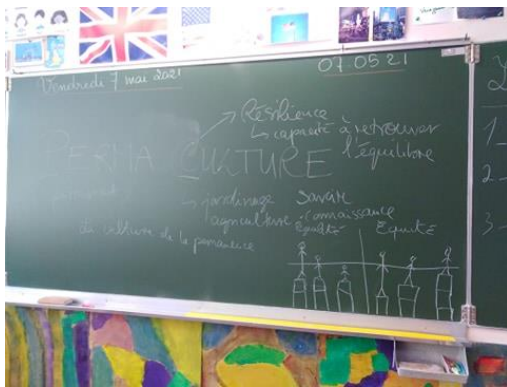 Vendredi 7 mai 2021
07.05.21
→ Résilience
↳ capacité à retrouver
l'équilibre
PERMA CULTURE
→ jardinage
agriculture
savoir
connaissance
culture de la permanence
égalité
Equité
1
2
3